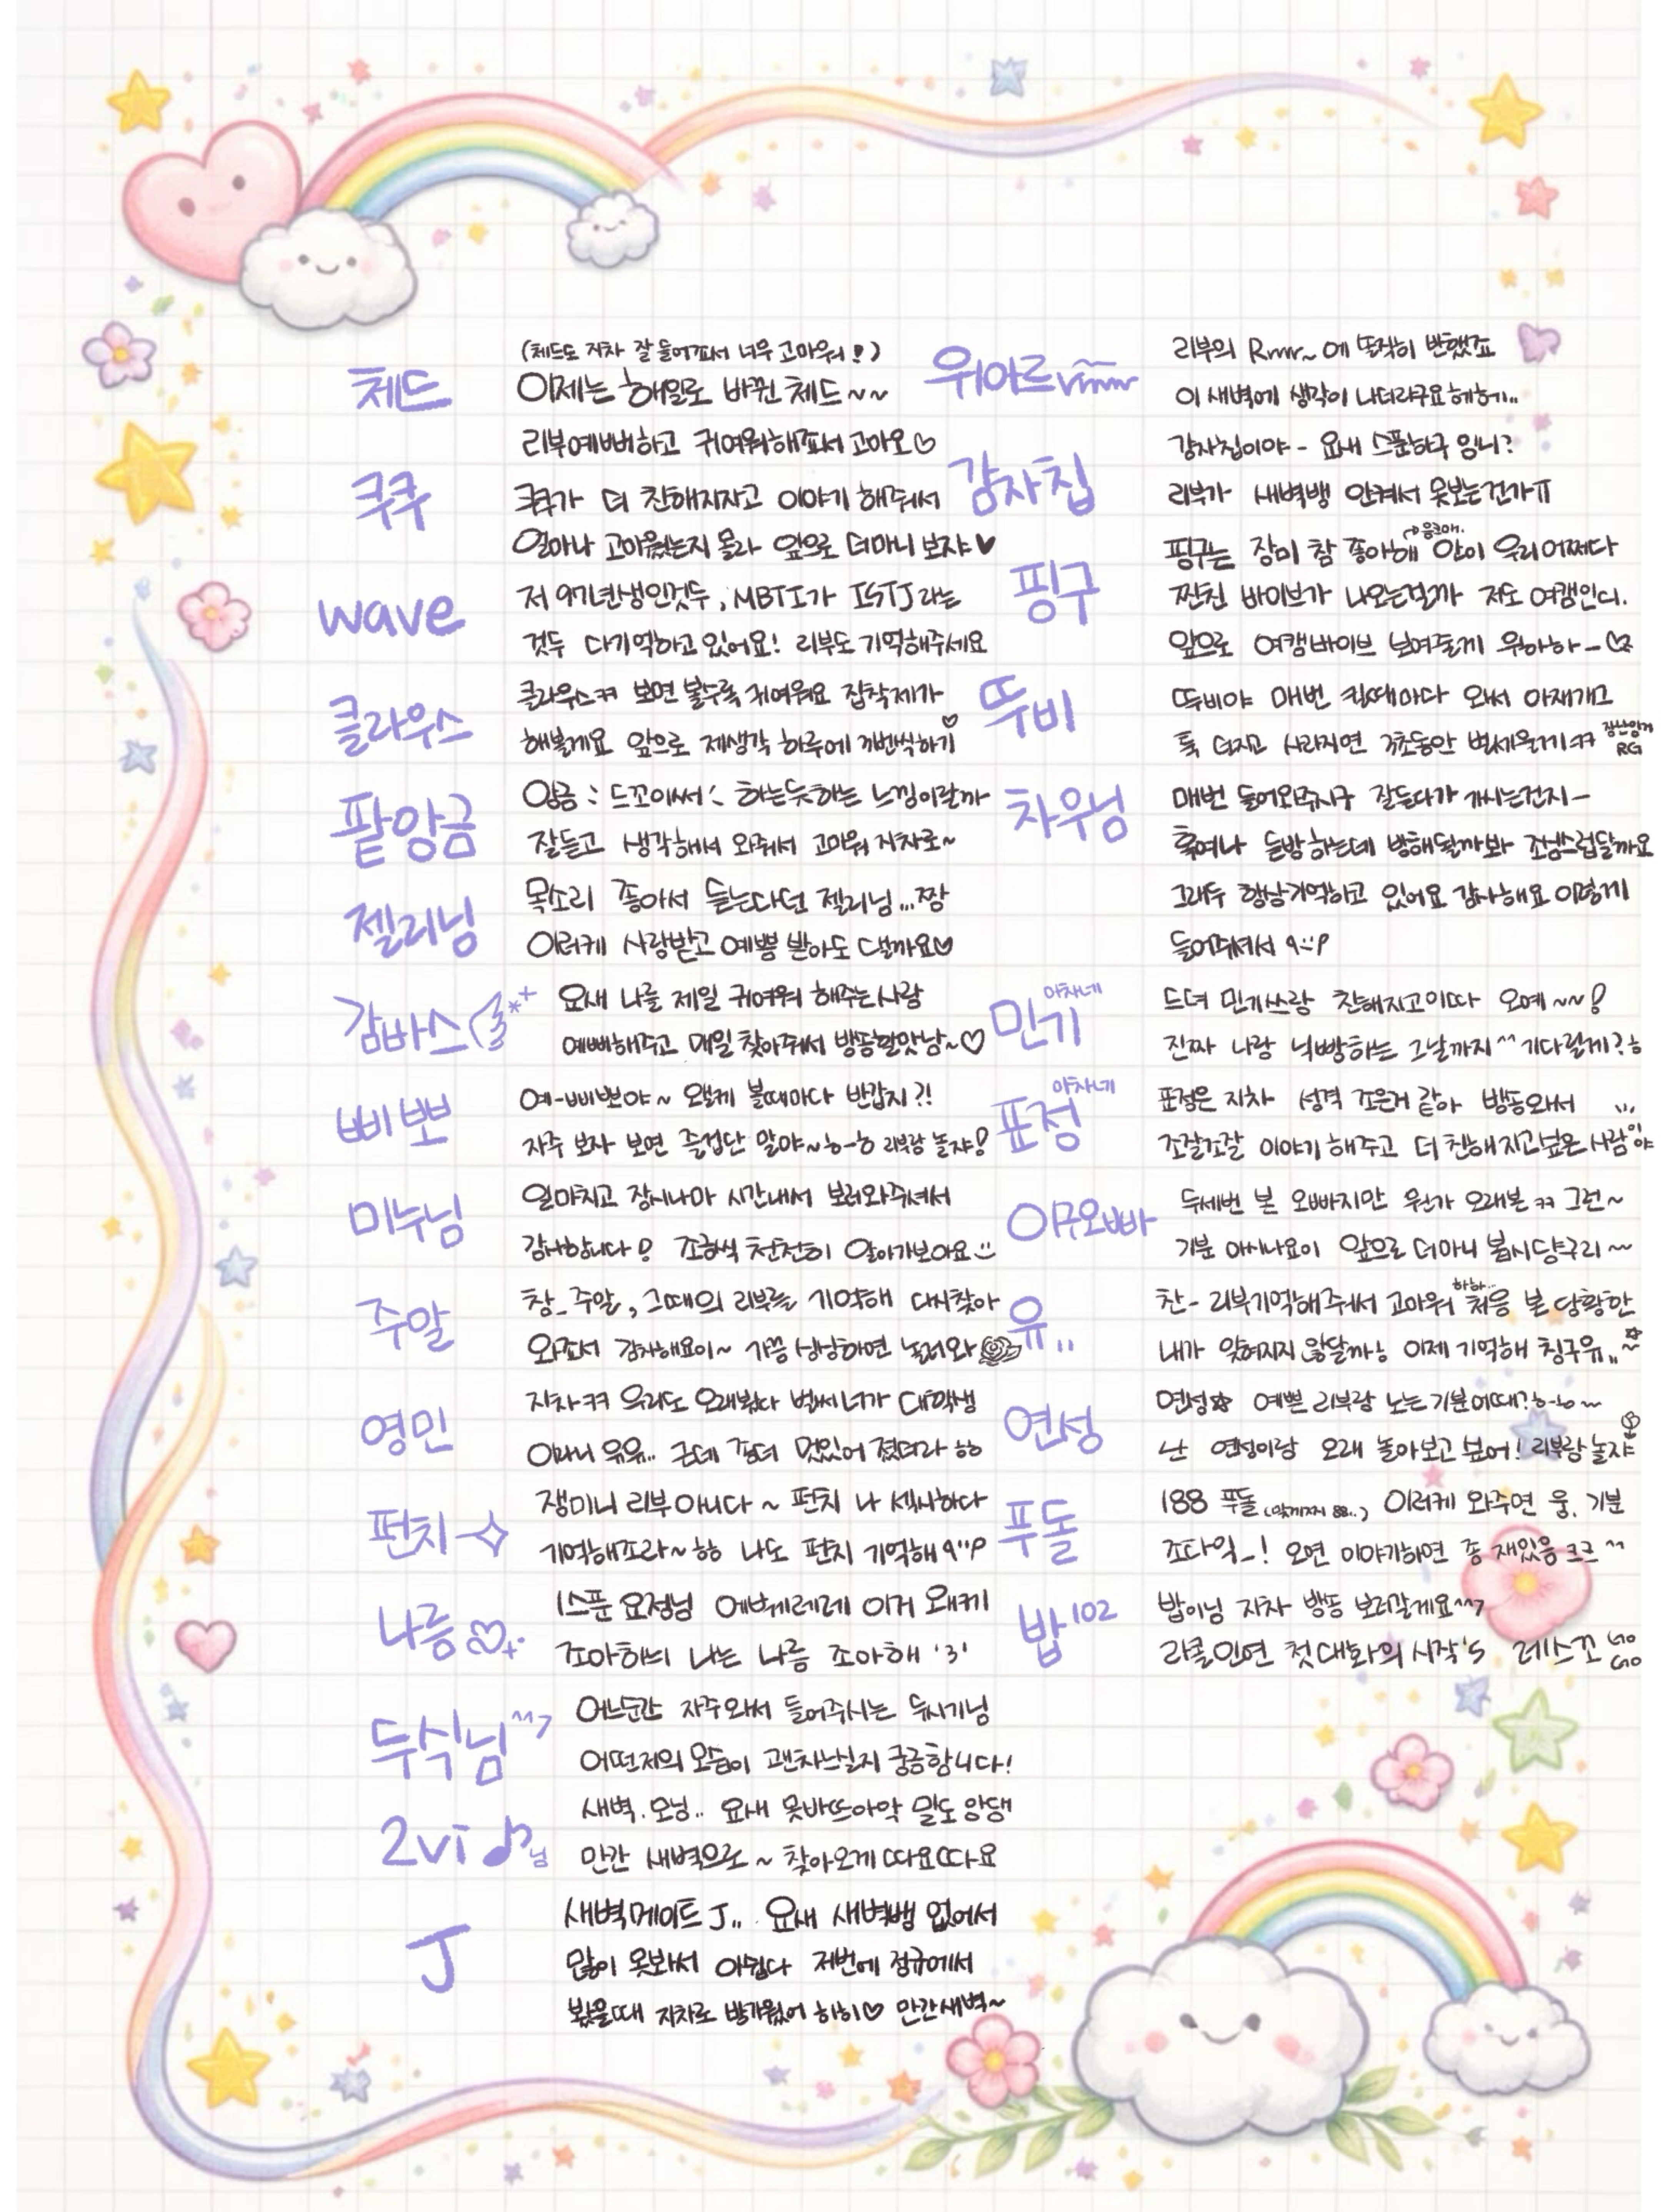 체드
(체드도 지차 잘 들어가죠서 너무 고마워!)
이제는 해일로 바뀐 체드~~
리부예뻐하고 귀여워해죠서 고마오♡
쿡쿡
쿡쿡가 더 친해지자고 이야기 해줘서
얼마나 고마웠는지 몰라 앞으로 더마니 보쟈♥
wave
저 97년생인것두, MBTI가 ISTJ라는
것두 다기억하고 있어요! 리부도 기억해주세요
클라우스
클라우스ㅋㅋ 보면 볼수록 귀여워요 집착제가
해볼게요 앞으로 제생각 하루에 끼번씩하기♡
팥앙금
앙금 : 드꼬이써 : 하는듯하는 느낌이랄까
잘듣고 생각해서 와줘서 고마워 지차로~
젤리님
목소리 좋아서 듣는다던 젤리님...짱
이러케 사랑받고 예쁨 받아도 댈까요♡
감바스
요새 나를 제일 귀여워 해주는사람
예뻐해주고 매일 찾아줘서 방송할맛남~♡
삐뽀
예-삐뽀야~ 왤케 볼때마다 반갑지?!
자주 보자 보면 즐겁단 말야~ㅎ-ㅎ 리부랑 놀쟈!
미누님
일마치고 잠시나마 시간내서 보러와주셔서
감사합니다! 조금씩 천천히 알아가보아요
주알
창_주알, 그때의 리부를 기억해 다시찾아
와죠서 감차해요이~ 가끔 심심하면 놀러와
영민
지차ㅋㅋ 우리도 오래봤다 벌써 너가 대학생
이라니 유유.. 근데 점더 멋있어 졌더라 ㅎㅎ
펀치
쟁미니 리부 아니다~ 펀치 나 섹시하다
기억해조라~ㅎㅎ 나도 펀치 기억해
나릉
1스푼 요정님 에베레레레 이거 왜케
조아하늬 나는 나릉 조아해 '3'
두식님^^7
어느순간 자주와서 들어주시는 두시기님
어떤저의 모습이 괜차느실지 궁금합니다!
2vi♪님
새벽.모닝.. 요새 못바쯔아악 말도 앙댐
만간 새벽으로~ 찾아오게 따요따요
J
새벽메이트 J.. 요새 새벽뱅 없어서
많이 못봐서 아쉽다 저번에 정규에서
봤을때 지차로 방가웠어 히히♡ 만간새벽~
위아르rrrrr
리부의 Rrrrr~에 똘작히 반했죠
이 새벽에 생각이 나더라구요헤헤..
감자칩
감자칩이야- 요새 스푼하구 있니?
리부가 새벽뱅 안켜서 못보는건가ㅠ
핑구
핑구는 장미 참 좋아해 안이 우리어쩌다
찐친 바이브가 나오는걸까 저도 여캠인디.
앞으로 여캠바이브 보여줄게 우하하-♡
뚜비
뚜비야 매번 킬때마다 와서 아재개그
툭 던지고 사라지면 3초동안 벌세울게ㅋㅋ 장난인거 RG
차우님
매번 들어와주시구 잘듣다가 가시는건지-
혹여나 듣방하는데 방해될까봐 조심스럽달까요
그래두 항상기억하고 있어요 감사해요 이렇게
들어주셔서
민기 아차네
드뎌 민기쓰랑 친해지고이따 오예~~!
진짜 나랑 닉빵하는 그날까지^^ 기다릴게?ㅎ
표정 아차네
표정은 지차 성격 조은거 같아 방송와서
조잘조잘 이야기해주고 더 친해지고싶은 사람이야
이구오빠
두세번 본 오빠지만 뭔가 오래본ㅋㅋ 그런~
기분 아시나요이 앞으로 더마니 봅시당구리~
유..
찬- 리부기억해줘서 고마워 하하.. 처음 본 당황한
내가 잊혀지지 않달까ㅎ 이제 기억해 칭구유..~
연성
연성☆ 예쁜 리부랑 노는 기분어때?ㅎ-ㅎ~
난 연성이랑 오래 놀아보고싶어! 리부랑놀쟈
푸돌
188 푸돌(맞까지 88..) 이러케 와주면 웅. 기분
조다익_! 오면 이야기하면 종 재있음 크크^^
밥102
밥이님 지차 뱅송 보러갈게요^^7
라콜인연 첫대화의 시작's 레스꼬 GO GO